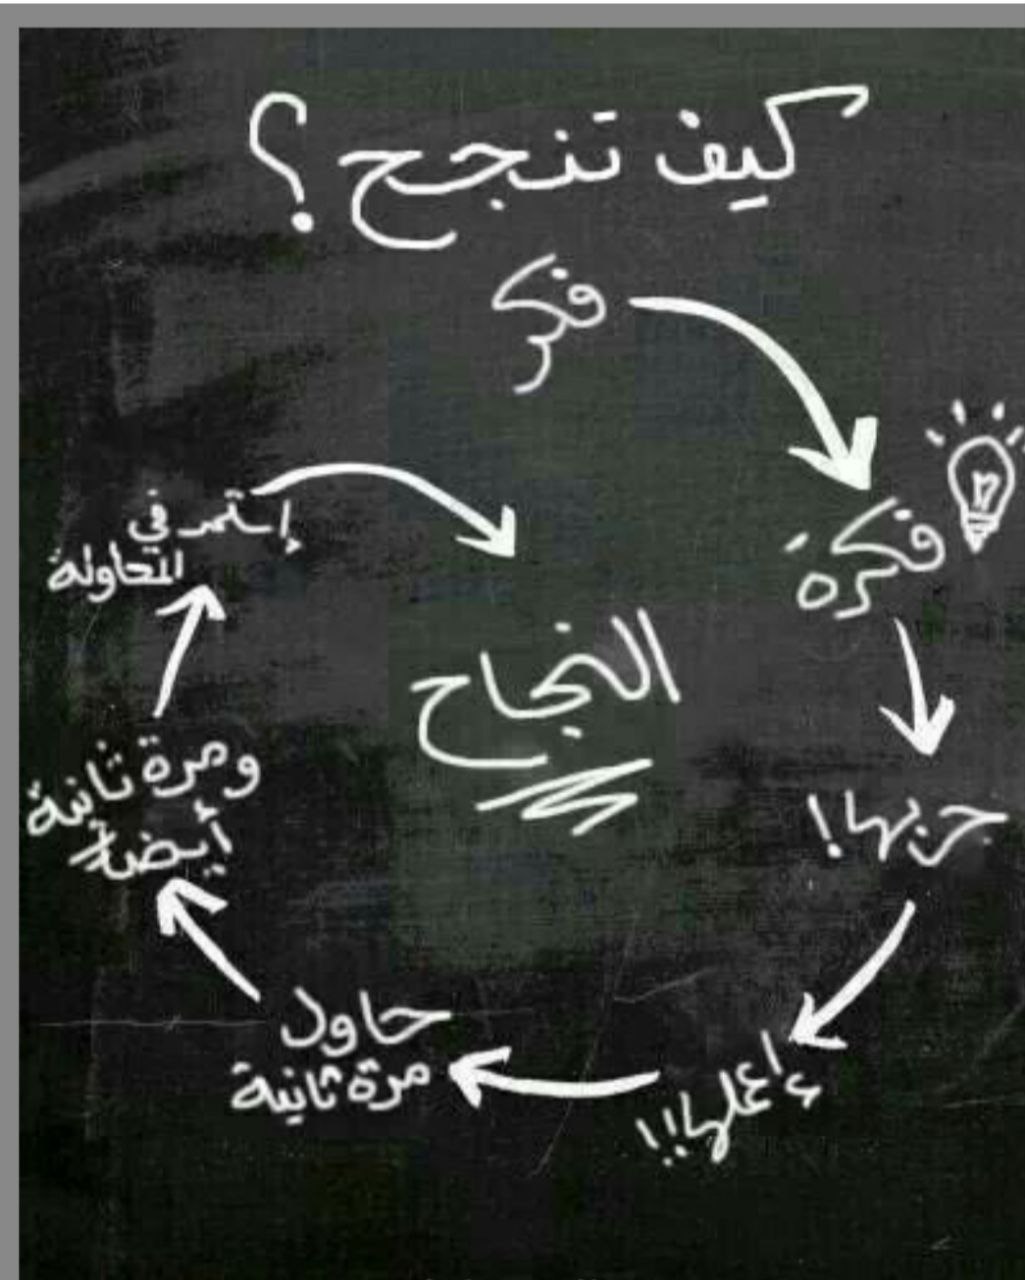 كيف تنجح ؟
فكر
فكرة
جربها !
إعملها !!
حاول
مرة ثانية
ومرة ثانية
أيضة
إستمر في
المحاولة
النجاح